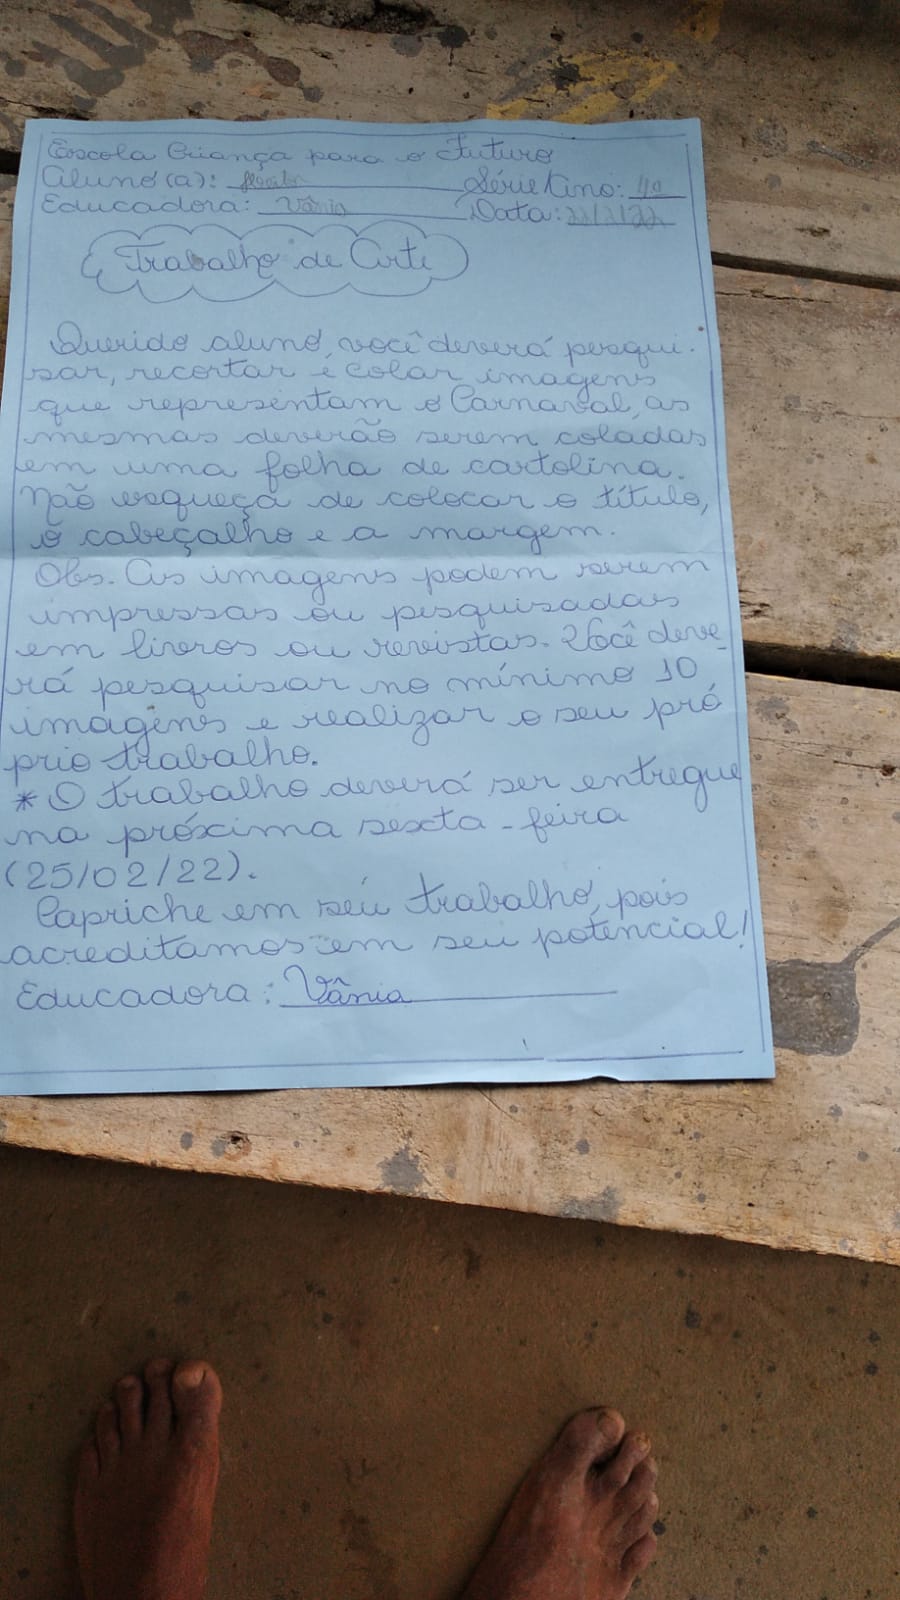 Escola Criança para o Futuro
Aluno(a): Série/Ano: 4º
Educadora: Vânia Data: 22/2/22
Trabalho de Arte
Querido aluno, você deverá pesqui-
sar, recortar e colar imagens
que representam o Carnaval, as
mesmas deverão serem coladas
em uma folha de cartolina.
Não esqueça de colocar o título,
o cabeçalho e a margem.
Obs. As imagens podem serem
impressas ou pesquisadas
em livros ou revistas. Você deve-
rá pesquisar no mínimo 10
imagens e realizar o seu pró
prio trabalho.
* O trabalho deverá ser entregue
na próxima sexta-feira
(25/02/22).
Capriche em seu trabalho, pois
acreditamos em seu potencial!
Educadora: Vânia